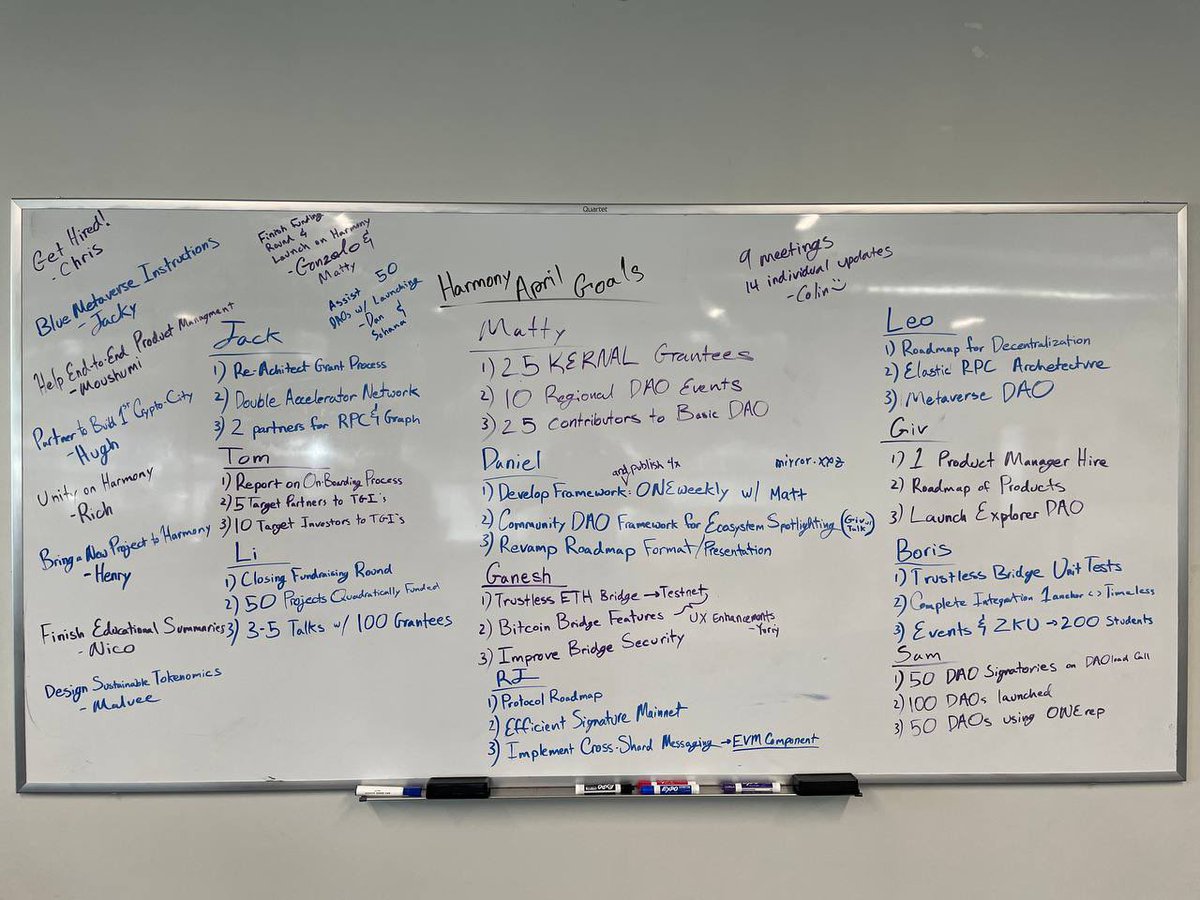 Quartet
Get Hired!
- Chris
Blue Metaverse Instructions
- Jacky
Help End-to-End Product Managment
- Moushumi
Partner to Build 1st Crypto-City
- Hugh
Unity on Harmony
- Rich
Bring a New Project to Harmony
- Henry
Finish Educational Summaries
- Nico
Design Sustainable Tokenomics
- Malvee
Finish Funding
Round &
Launch on Harmony
- Gonzalo &
Matty
Assist 50
DAOs w/ Launching
- Dan &
Sohana
Harmony April Goals
9 meetings
14 individual updates
- Colin
Jack
1) Re-Achitect Grant Process
2) Double Accelerator Network
3) 2 partners for RPC & Graph
Tom
1) Report on On-Boarding Process
2) 5 Target Partners to TGI's
3) 10 Target Investors to TGI's
Li
1) Closing Fundraising Round
2) 50 Projects Quadratically Funded
3) 3-5 Talks w/ 100 Grantees
Matty
1) 25 KERNAL Grantees
2) 10 Regional DAO Events
3) 25 Contributors to Basic DAO
Daniel
and publish 4x
mirror.xyz
1) Develop Framework: ONEweekly w/ Matt
2) Community DAO Framework for Ecosystem Spotlighting (Giv... Talk)
3) Revamp Roadmap Format/Presentation
Ganesh
1) Trustless ETH Bridge → Testnet
2) Bitcoin Bridge Features
UX Enhancements
- Yoriy
3) Improve Bridge Security
RJ
1) Protocol Roadmap
2) Efficient Signature Mainnet
3) Implement Cross-Shard Messaging → EVM Component
Leo
1) Roadmap for Decentralization
2) Elastic RPC Archetecture
3) Metaverse DAO
Giv
1) 1 Product Manager Hire
2) Roadmap of Products
3) Launch Explorer DAO
Boris
1) Trustless Bridge Unit Tests
2) Complete Integration 1wallet <> Timeless
3) Events & ZKU → 200 Students
Sam
1) 50 DAO Signatories on DAO Call
2) 100 DAOs launched
3) 50 DAOs using ONErep
EXPO